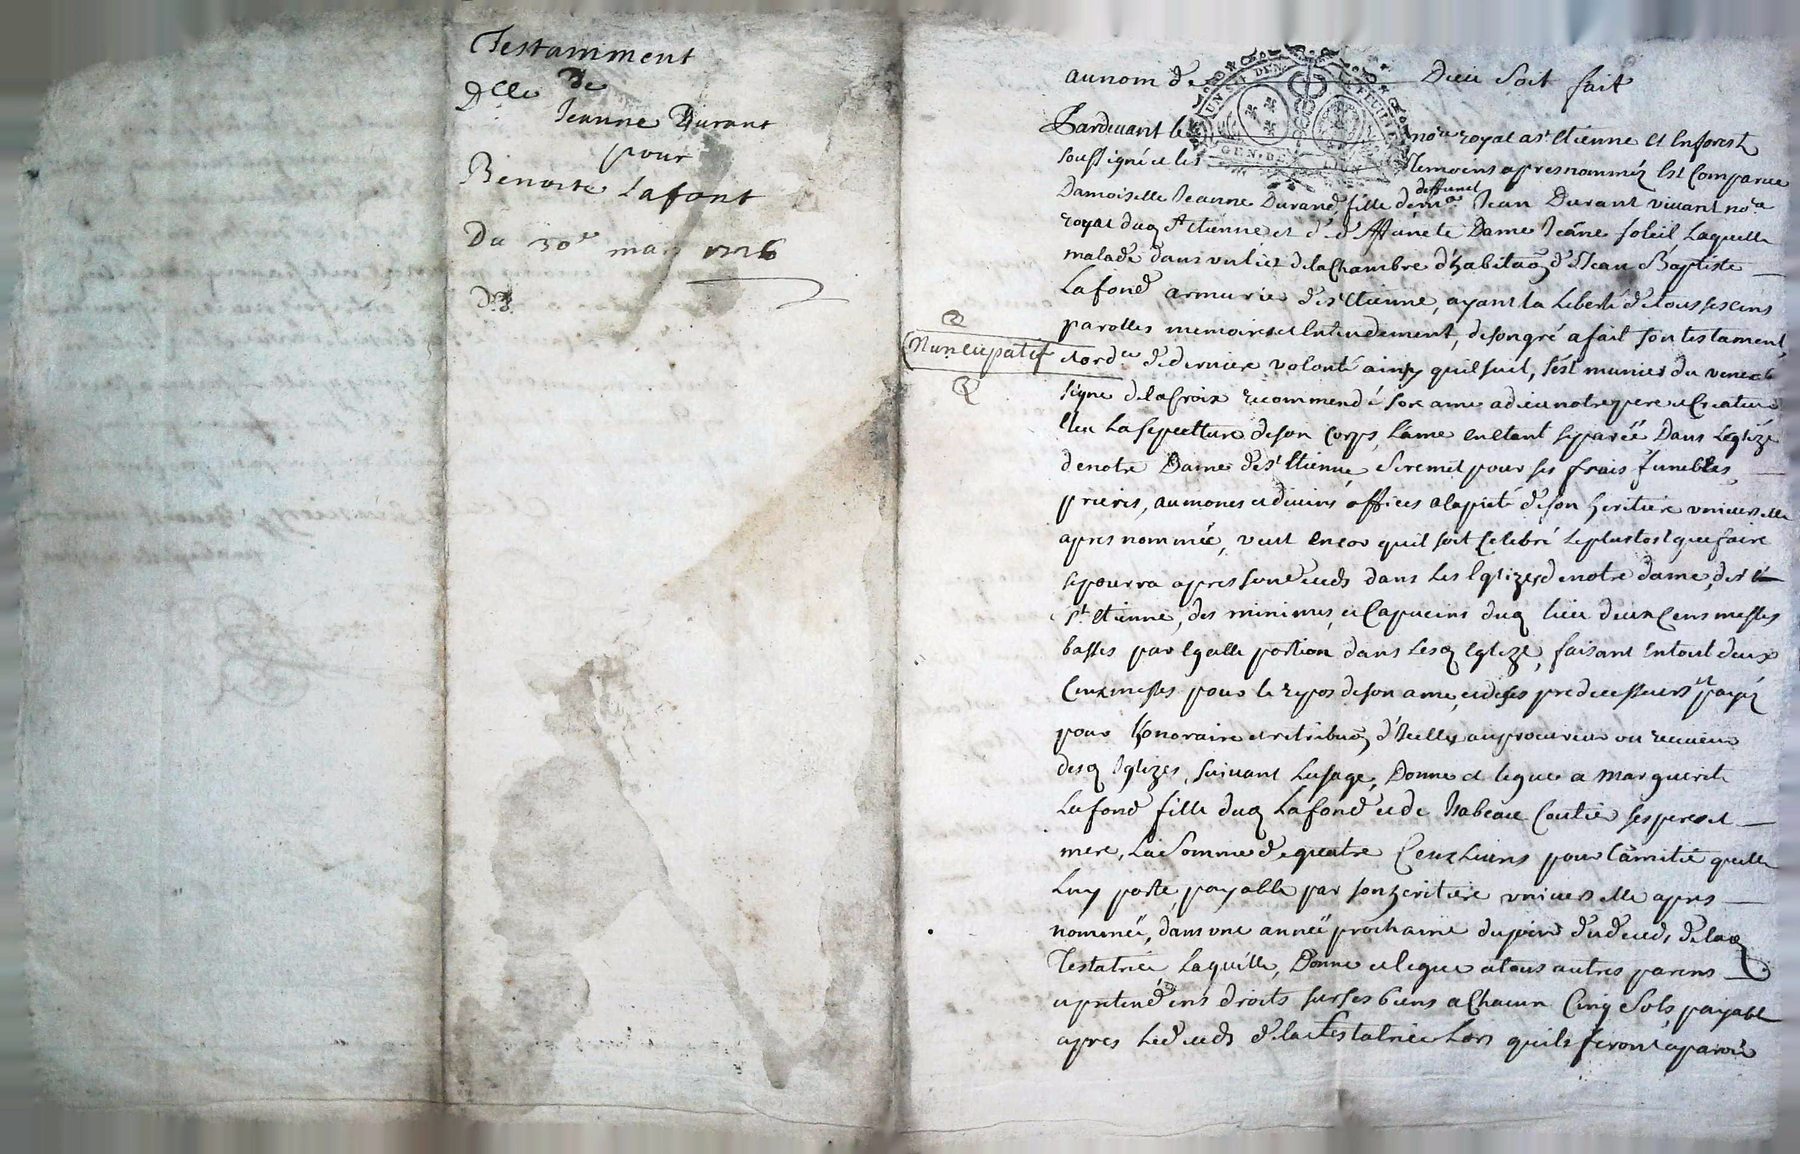 Testamment
de
Dlle Jeanne Durant
pour
Benoite Lafont
Du 30e mars 1726
au nom de Dieu soit fait
Pardevant le nore royal a st Etienne Et Enforest
soussigné et les Temoins apres nomméz Est Comparue
deffunct
Damoiselle Jeanne Durand, fille de mre Jean Durant vivant nore
royal duq st Etienne et de deffuncte Dame Jeane soleil Laquelle
malade dans un lict de la Chambre d'habitaon de Jean Baptiste
Lafond armurier de st Etienne, ayant la Liberté de tous ses cens
parolles memoire et Entendement, de son gré a fait son testament
Nuncupatif et ordce de derniere volonté ainsy quil suit, s'est munier du venerable
signe de la Croix recommendé son ame a dieu notre pere et Createur
Eleu La sepulture de son Corps, Lame en Etant separéë Dans L'eglize
de notre Dame de st Etienne se remet pour ses frais funebres
prieres, aumones et divins offices a la pieté de son heritiere universelle
apres nommée, veut encor quil soit Celebré le plustost que faire
se pourra apres son deceds dans Les Eglizes de notre dame, de
st Etienne, des minimes, et Capucins duq lieu deux Cens messes
basses par Egalle portion dans Lesq Eglize, faisant En tout deux
Cens messes pour le repos de son ame, et de ses predecesseurs et payé
pour honoraire et retribuon d'Icelles au procureur ou receveur
desq Eglizes, suivant Lusage, Donne et legue a Marguerite
Lafond fille duq Lafond et de Isabeau Coutier ses pere et
mere, La Somme de quatre Cens Livres pour l'amitié quelle
Luy porte, payable par son heritiere universelle apres
nommeë, dans une anneë prochaine du jour du deceds de laq
Testatrice Laquelle, Donne et legue a tous autres parens
et pretendens droits sur ses biens a Chacun Cinq Sols, payable
apres Le deceds de la Testatrice Lors quils feront aparoir